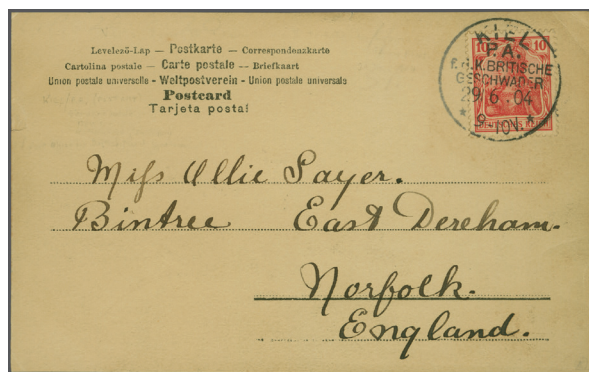 Levelező-Lap — Postkarte — Correspondenzkarte
Cartolina postale — Carte postale — Briefkaart
Union postale universelle - Weltpostverein - Union postale universale
Postcard
Tarjeta postal
10 10
DEUTSCHES REICH
KIEL
P.A.
f.d.K.BRITISCHE
GESCHWADER
29 6 04
* 9-10V. *
Miss Ollie Sayer.
Bintree East Dereham.
Norfolk.
England.